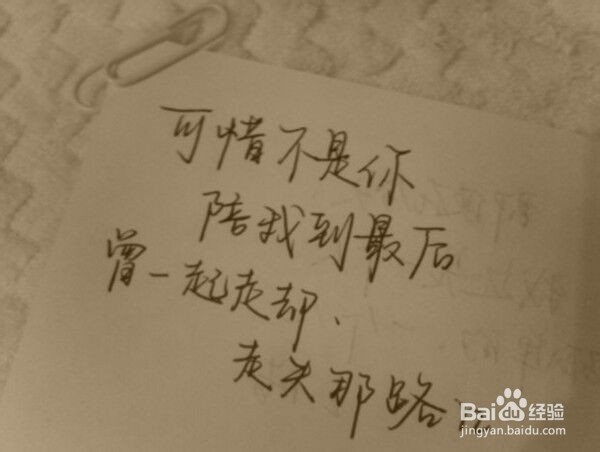 可惜不是你
陪我到最后
曾一起走却、
走失那路
Baidu经验
jingyan.baidu.com